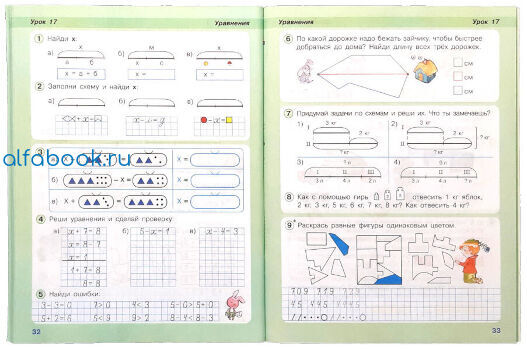 Урок 17 Уравнения
1 Найди х:
а) х б) м в) х
а б х к
х = а + б х = х =
2 Заполни схему и найди х:
а) б) в)
alfabook.ru
3
а) х =
б) – х = х =
в) х + = х =
4 Реши уравнения и сделай проверку
а) х + 7 = 8 б) 5 – х = 1 в) х – 4 = 3
х = 8 – 7
х = 1
1 + 7 = 8
8 = 8
5 Найди ошибки:
3 – 3 = 0 7 > 0 4 < 3 5 – 0 > 5 + 0
5 + 2 = 6 5 < 9 9 > 2 8 – 4 < 8 – 3
32
Уравнения Урок 17
6 По какой дорожке надо бежать зайчику, чтобы быстрее
добраться до дома? Найди длину всех трёх дорожек.
см
см
см
7 Придумай задачи по схемам и реши их. Что ты замечаешь?
1) 3 кг 2) ? кг
I I
II 2 кг II 2 кг
? кг
3) 4)
I II III I II III
3 л 4 л ? л
8 Как с помощью гирь отвесить 1 кг яблок,
2 кг, 3 кг, 5 кг, 6 кг, 7 кг, 8 кг? Как отвесить 4 кг?
9* Раскрась равные фигуры одинаковым цветом.
33